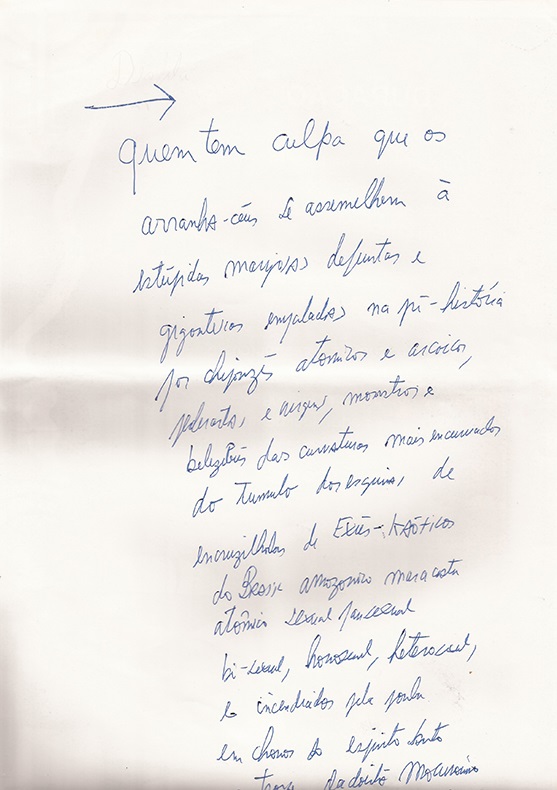 Quem tem culpa que os
arranha-céus se assemelhem à
estúpidas mariposas defuntas e
gigantescas empaladas na pré-história
por chipanzés atomicos e arcaicos,
pederastas e virgens, monstros e
das curvaturas mais encurvadas
do tumulo das esquinas de
encruzilhadas de Exús-kaóticos
do Brasil amazonico
atômico sexual pansexual
bi-sexual, homosexual, heterosexual,
e incendiados pela
em chamas do espirito santo